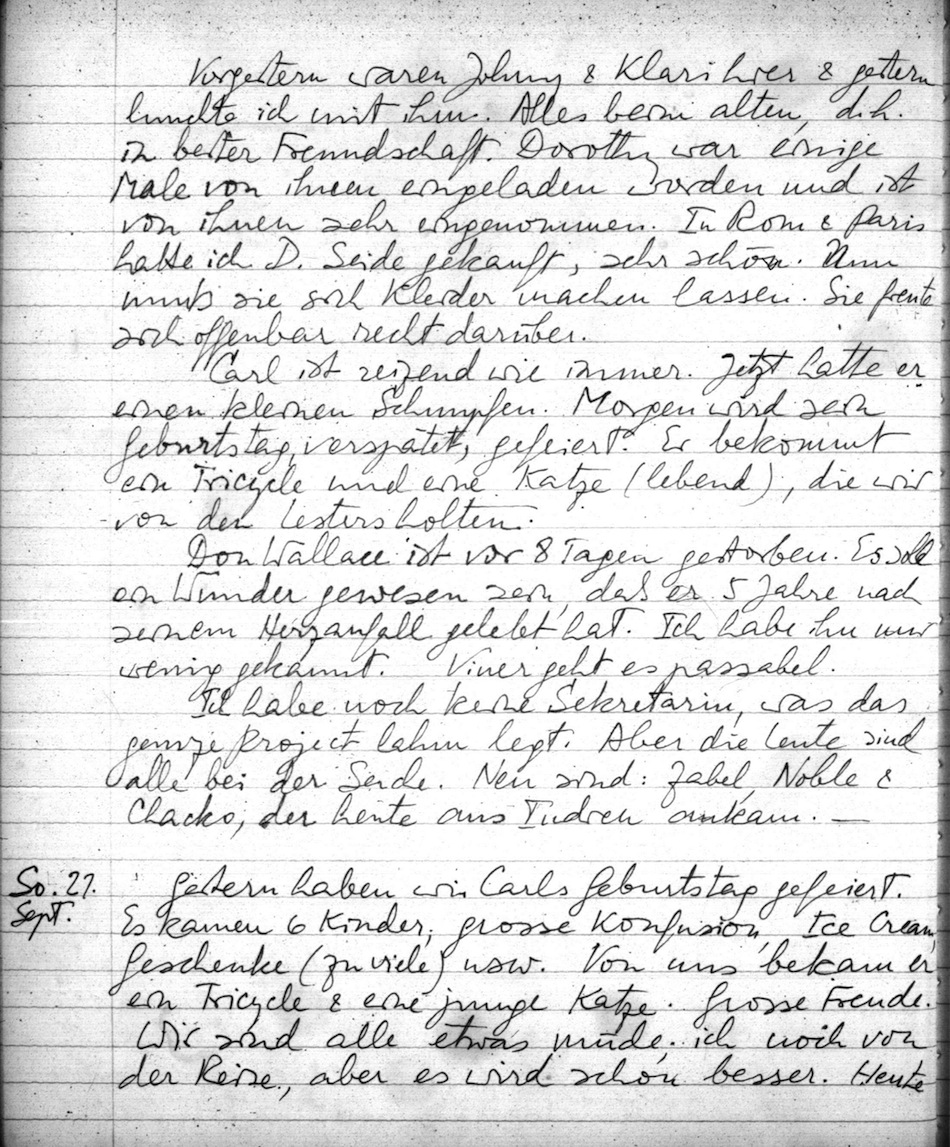 Vorgestern waren Johnny & Klari hier & gestern
lunchte ich mit ihm. Alles beim alten, d.h.
in bester Freundschaft. Dorothy war einige
Male von ihnen eingeladen worden und ist
von ihnen sehr eingenommen. In Rom & Paris
hatte ich D. Seide gekauft, sehr schön. Nun
muß sie sich Kleider machen lassen. Sie freute
sich offenbar recht darüber.
Carl ist reizend wie immer. Jetzt hatte er
einen kleinen Schnupfen. Morgen wird sein
Geburtstag, verspätet, gefeiert. Er bekommt
ein Tricycle und eine Katze (lebend), die wir
von den Lesters holten.
Don Wallace ist vor 8 Tagen gestorben. Es soll
ein Wunder gewesen sein, daß er 5 Jahre nach
seinem Herzanfall gelebt hat. Ich habe ihn nur
wenig gekannt. Viner geht es passabel.
Ich habe noch keine Sekretärin, was das
ganze Project lahm legt. Aber die Leute sind
alle bei der Sache. Neu sind: Zabel, Noble &
Chacko, der heute aus Indien ankam. —
So. 27. Gestern haben wir Carls Geburtstag gefeiert.
Sept. Es kamen 6 Kinder, grosse Konfusion, Ice Cream,
Geschenke (zu viele) usw. Von uns bekam er
ein Tricycle & eine junge Katze. Grosse Freude.
Wir sind alle etwas müde, ich noch von
der Reise, aber es wird schon besser. Heute